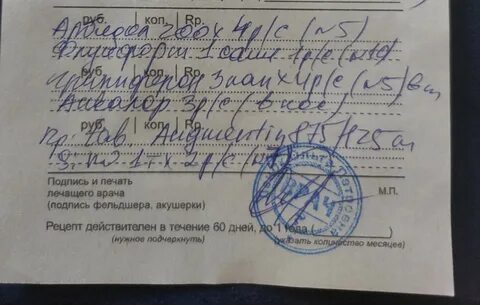 руб. коп. Rp.
Арбидол 200 х 4 р/с (№5)
Флуифорт 1 саше 1 р/с (№10)
руб. коп. Rp.
3 кап х 4 р/с (№5) в
Аквалор 3 р/с (в нос)
руб. коп. Rp.
tab. Augmentin 875/125
S: по 1 т х 2 р/с (№7)
Подпись и печать
лечащего врача
(подпись фельдшера, акушерки)
М.П.
ВРАЧ
Рецепт действителен в течение 60 дней, до 1 года
(нужное подчеркнуть) (указать количество месяцев)